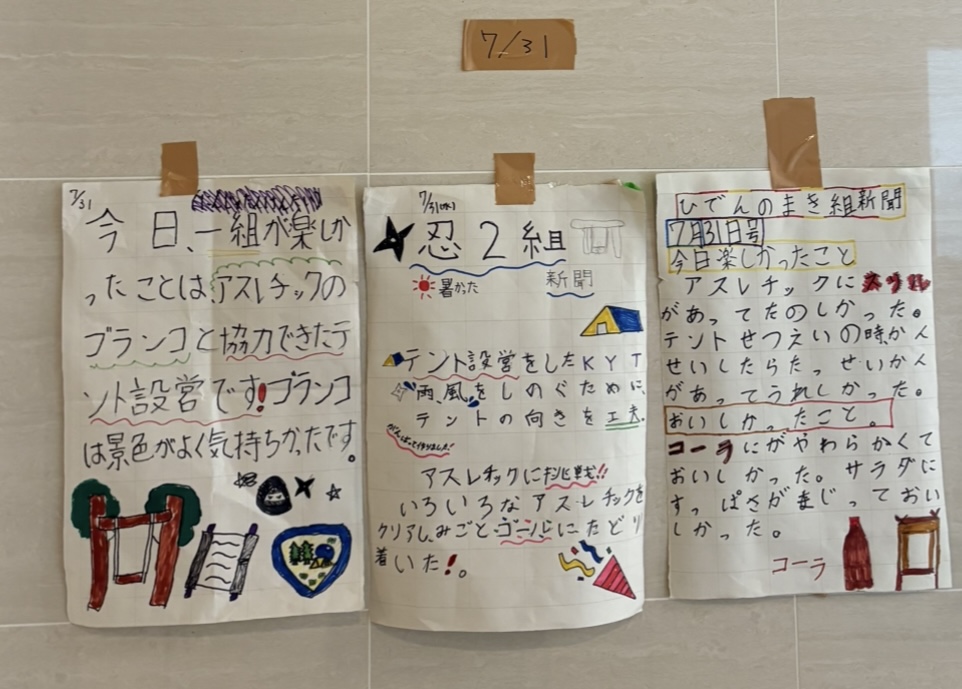 7/31
7/31
今日、一組が楽しか
ったことは、アスレチックの
ブランコと協力できたテ
ント設営です!ブランコ
は景色がよく気持ちかったです。
7/31(木)
忍2組
暑かった
新聞
テント設営をしたKYT
雨、風をしのぐために、
テントの向きを工夫。
がんばって作りました!
アスレチックに挑戦!!
いろいろなアスレチックを
クリアし、みごとゴールにたどり
着いた!。
ひでんのまき組新聞
7月31日号
今日楽しかったこと
アスレチックに
があってたのしかった。
テントせつえいの時かん
せいしたらたっせいかん
があってうれしかった。
おいしかったこと。
コーラにがやわらかくて
おいしかった。サラダに
すっぱさがまじっておい
しかった。
コーラ